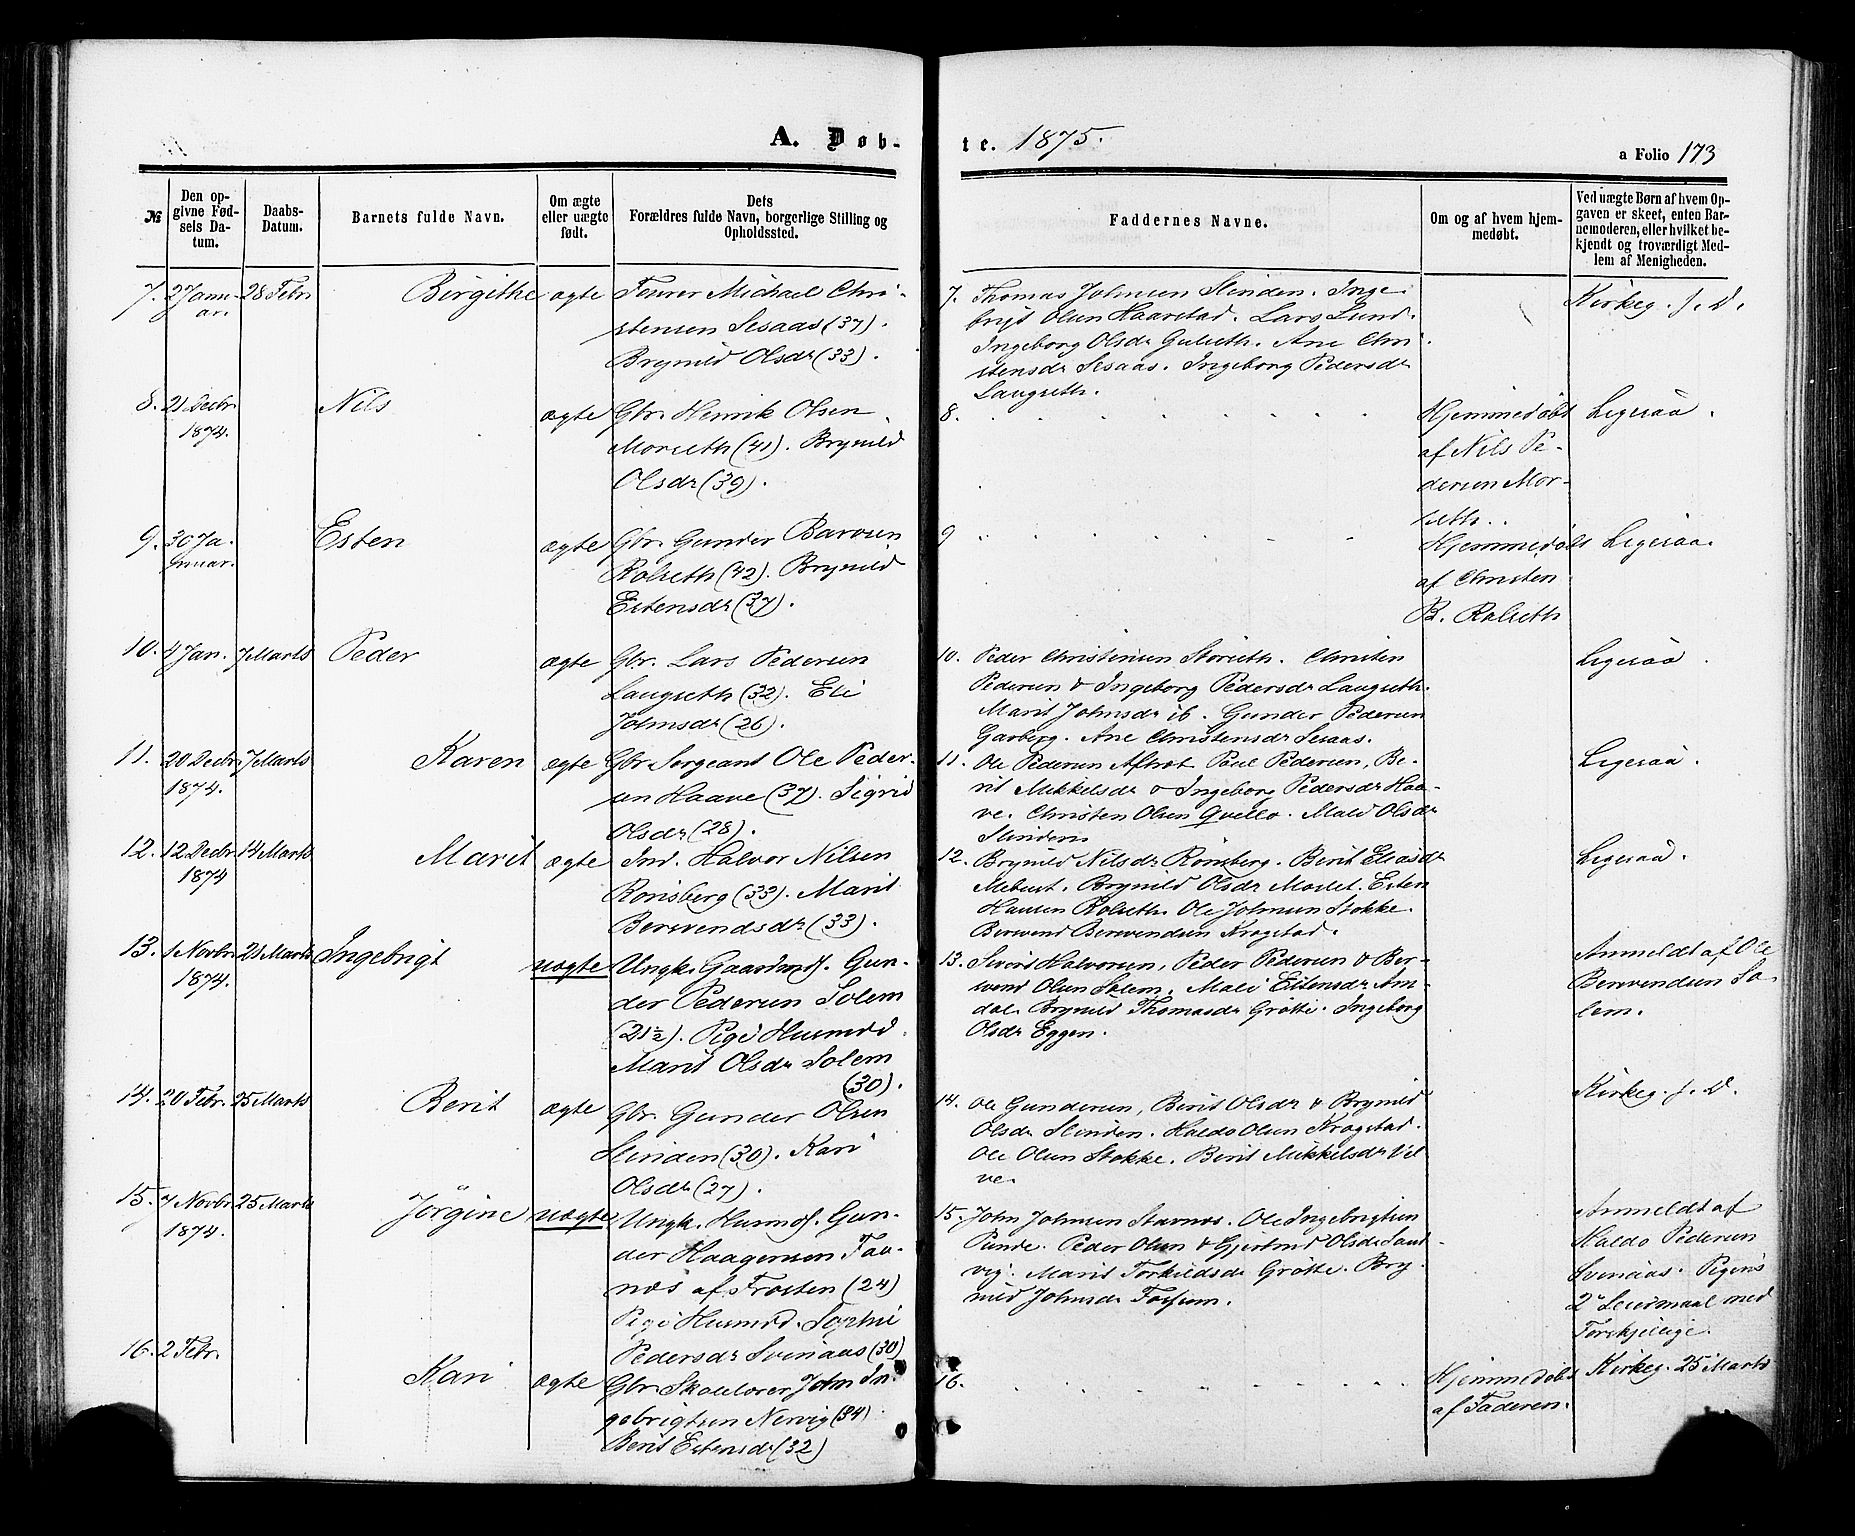 A. Døb-
te. 1875.
a Folio 173
№
Den op-
givne Fød-
sels Da-
tum.
Daabs-
Datum.
Barnets fulde Navn.
Om ægte
eller uægte
født.
Dets
Forældres fulde Navn, borgerlige Stilling og
Opholdssted.
Faddernes Navne.
Om og af hvem hjem-
medøbt.
Ved uægte Børn af hvem Op-
gaven er skeet, enten Bar-
nemoderen, eller hvilket be-
kjendt og troværdigt Med-
lem af Menigheden.
7. 2 Janu- 28 Febr Birgithe ægte Michael Chri-
ar. stensen Sesaas (37).
Brynild Olsdr (33).
7. Thomas Johnsen Slinden. Inge-
brigt Olsen Haarstad. Lars Lund.
Ingeborg Olsdr Gulseth. Ane Chri-
stensdr Sesaas. Ingeborg Pedersdr
Langseth.
Kirkeg. s. D.
8. 21 Decbr Nils ægte Gbr. Henrik Olsen
1874. Morseth (41). Brynild
Olsdr (39).
8.
Hjemmedøbt
af Nils Pe-
dersen Mor-
seth.
Ligesaa.
9. 30 Ja- Esten ægte Gbr. Gunder Barosen
nuar. Rolseth (42). Brynild
Estensdr (37).
9
Hjemmedøbt
af Christen
B. Rolseth
Ligesaa.
10. 4 Jan. 7 Marts Peder ægte Gbr. Lars Pedersen
Langseth (32). Eli
Johnsdr (26).
10. Peder Christensen Storseth. Christen
Pedersen & Ingeborg Pedersdr Langseth.
Marit Johnsdr ib. Gunder Pedersen
Garberg. Ane Christensdr Sesaas.
Ligesaa.
11. 20 Decbr 7 Marts Karen ægte Gbr. Sergeant Ole Peder-
1874. sen Haave (37). Sigrid
Olsdr (28).
11. Ole Pedersen Aftret. Paul Pedersen, Be-
rit Mikkelsdr & Ingeborg Pedersdr Haa-
ve. Christen Olsen Qvello. Mali Olsdr
Slinden
Ligesaa.
12. 12 Decbr 14 Marts Marit ægte Ind. Halvor Nilsen
1874 Rønsberg (33). Marit
Berwendsdr (33).
12. Brynild Nilsdr Rønsberg. Berit Eliasdr
Mebust. Brynild Olsdr Moslet. Esten
Hansen Rolseth. Ole Johnsen Stokke.
Berwend Berwendsen Krogstad.
Ligesaa.
13. 1 Novbr 21 Marts Ingebrigt uægte Ungk. Gaardmds. Gun-
1874. der Pedersen Solem
(21½). Pige Husmd.
Marit Olsdr Solem
(30).
13. Sivert Halvorsen, Peder Pedersen & Ber-
wend Olsen Solem. Mali Estensdr Am-
dal. Brynild Thomasdr Grøtte. Ingeborg
Olsdr Eggen.
Anmeldt af Ole
Berwendsen So-
lem.
14. 20 Febr. 25 Marts Berit ægte Gbr. Gunder Olsen
Slinden (30). Kari
Olsdr (27).
14. Ole Gundersen, Berit Olsdr & Brynild
Olsdr Slinden. Haldo Olsen Krogstad.
Ole Olsen Stokke. Berit Mikkelsdr Vel-
ve.
Kirkeg. s. D.
15. 7 Novbr 25 Marts Jørgine uægte Ungk. Husmds. Gun-
1874. der Haagensen
af Frosten (24)
Pige Husmd. Sophie
Pedersdr Svinaas (30)
15. John Johnsen Stavnes. Ole Ingebrigtsen
Peder Olsen & Gjertrud Olsdr Sand-
vig. Marit Torkildsdr Grøtte. Bry-
nild Johnsdr Fossum.
Anmeldt af
Haldo Pedersen
Svinaas. Pigens
2det Leiermaal med
Forskjellige.
16. 2 Febr. Kari ægte Gbr. Skolelærer John In-
gebrigtsen Nervig (34)
Berit Estensdr (32)
16.
Hjemmedøbt
af Faderen.
Kirkeg. 25 Marts